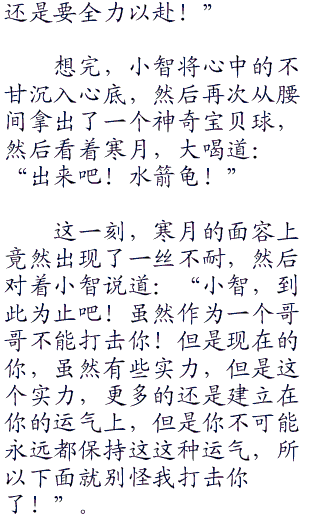 还是要全力以赴！”
想完，小智将心中的不
甘沉入心底，然后再次从腰
间拿出了一个神奇宝贝球，
然后看着寒月，大喝道：
“出来吧！水箭龟！”
这一刻，寒月的面容上
竟然出现了一丝不耐，然后
对着小智说道：“小智，到
此为止吧！虽然作为一个哥
哥不能打击你！但是现在的
你，虽然有些实力，但是这
个实力，更多的还是建立在
你的运气上，但是你不可能
永远都保持这这种运气，所
以下面就别怪我打击你
了！”。